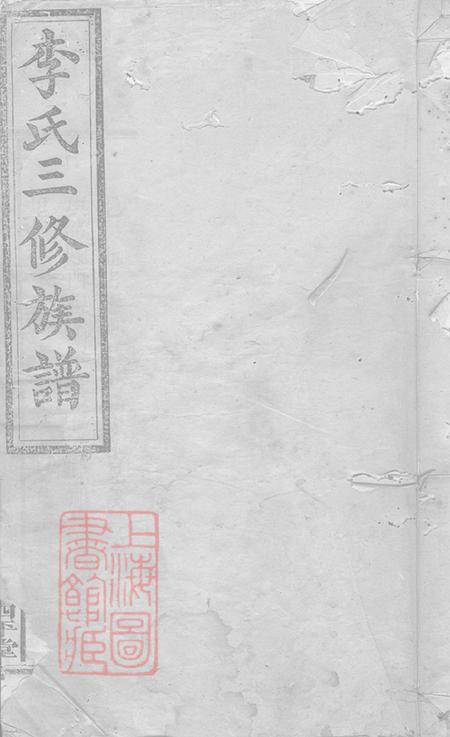 李氏三修族譜
上海圖
書館藏